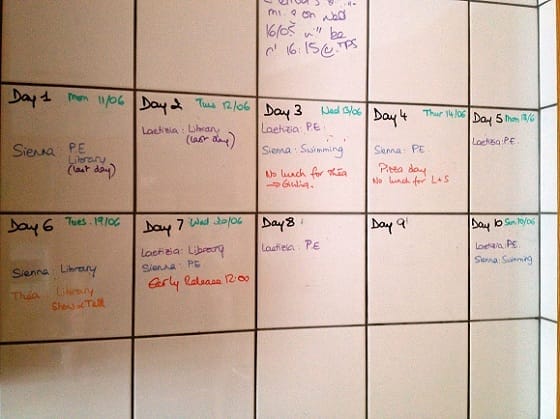 on Wed
16/05 be
16:15@ TPS
Day 1 Mon 11/06
Sienna P.E
Library
(last day)
Day 2 Tues 12/06
Laetizia: Library
(last day)
Day 3 Wed 13/06
Laetizia: P.E.
Sienna: Swimming
No lunch for Thea
→ Giulia.
Day 4 Thur 14/06
Sienna: P.E.
Pizza day
No lunch for L+S
Day 5 Mon 18/6
Laetizia: P.E.
Day 6 Tues. 19/06
Sienna: Library
Thea: Library
Show & Tell
Day 7 Wed 20/06
Laetizia: Library
Sienna: PE
Early Release 12:00
Day 8
Laetizia: P.E
Day 9
Day 10
Laetizia: P.E.
Sienna: Swimming